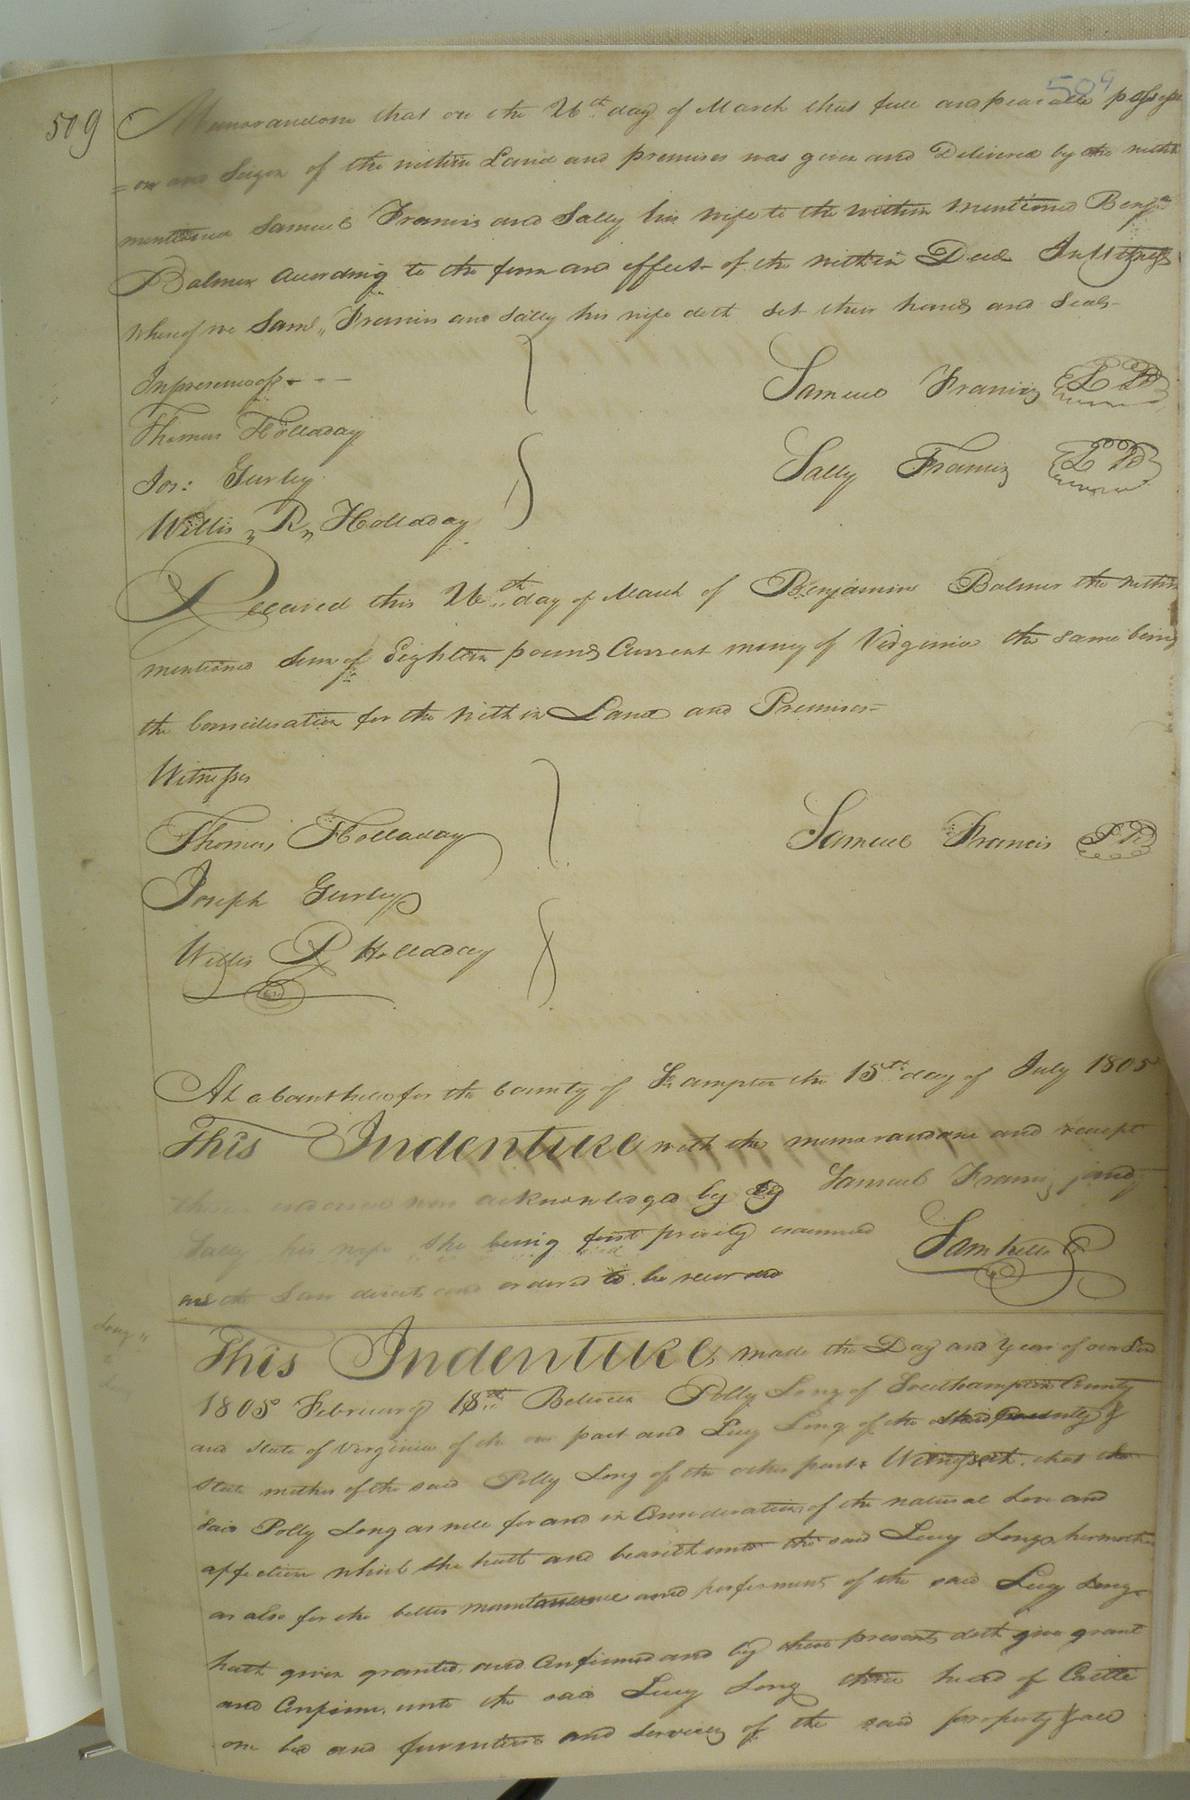 509
509
Memorandom that on the 26th day of March that full and peaceable possessi
=on and Seizen of the within Land and premises was given and Delivered by the within
mentioned Samuel Francis and Sally his wife to the within mentioned Benja
Balmer according to the form and effect of the within Deed In Witness
Whereof we Saml,, Francis and Sally his wife doth set their hands and Seals
In presence of - - -
Samuel Francis
Thomas Holladay
Sally Francis
Jos: Gurley
Willis ,, R ,, Holladay
Received this 26th day of March of Benjamin Balmer the within
mentioned Sum of Eighteen pounds Current money of Virginia the same being
the Consideration for the within Land and Premises
Witnesses
Thomas Holladay
Samuel Francis
Joseph Gurley
Willis R Holladay
At a Court held for the County of Southampton the 15th day of July 1805
This Indenture with the memorandom and receipt
thereon endorsed was acknowledged by Samuel Francis and
Sally his wife she being first privily examined
as the Law directs and ordered to be recorded
Sam Kello
Long "
to
Long
This Indenture made the Day and Year of our Lord
1805 February 18th Between Polly Long of Southampton County
and State of Virginia of the one part and Lucy Long of the County &
State mother of the said Polly Long of the other part Witnesseth that the
said Polly Long as well for and in Consideration of the natural Love and
affection which she hath and beareth unto the said Lucy Long her mother
as also for the better maintenance and preferment of the said Lucy Long
hath given granted and Confirmed and by these presents doth give grant
and Confirm unto the said Lucy Long three head of Cattle
one bed and furniture and services of the said property & all